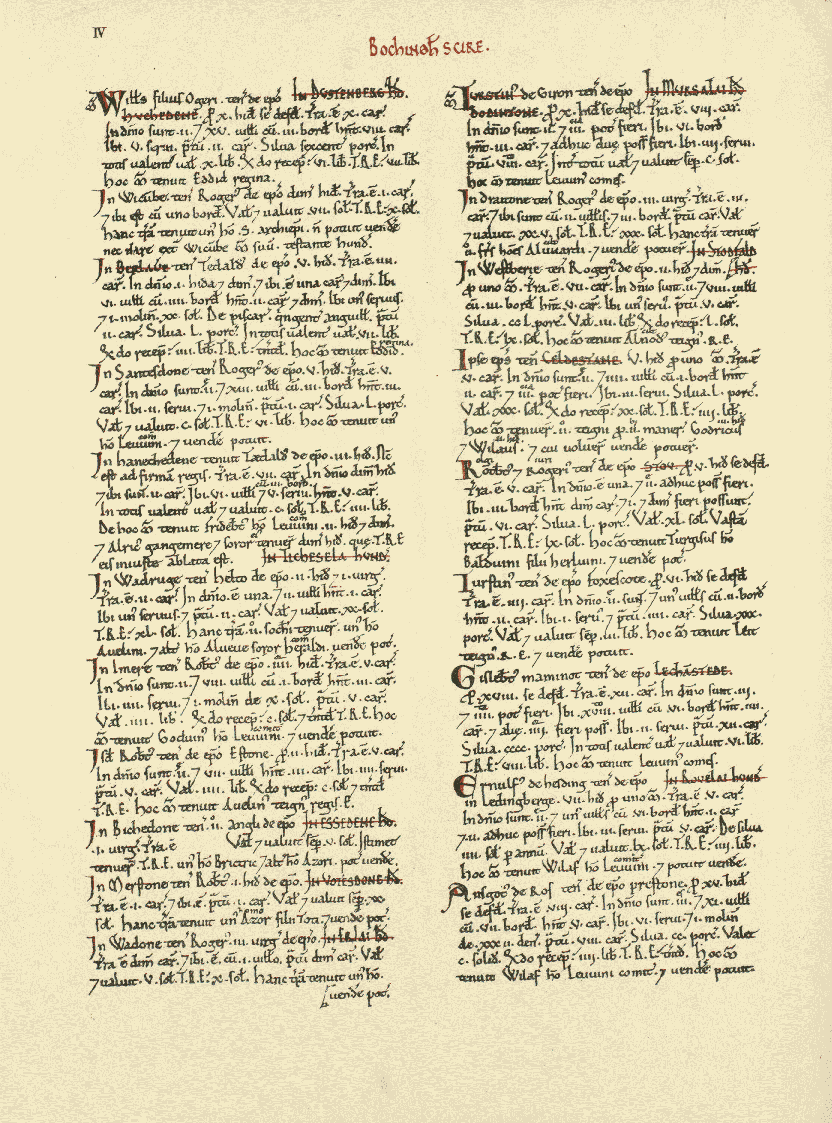 IV
BochinGh SCIRE.
Wills filius Ogeri. ten de epo In DUSTENBERG HD.
HUCHEDENE. p. x. hid se defd. Tra. ē. x. car.
In dnio sunt. ii. 7 xv. uilli cū. iii. bord hnt. viii. car.
Ibi. v. serui. ptū. ii. car. Silua sexcent porc. In
totis ualent ual. x. lib. X do recep. vi. lib. T.R.E. viii. lib.
hoc M tenuit Eddid regina.
In Wicūbe ten Roger de epo dim hid. Tra. ē. i. car.
7 ibi est cū uno bord. Val 7 ualuit. vii. sol. T.R.E. x. sol.
hanc tra tenuit un ho S. archiepi. n potuit uende
nec dare ext Wicūbe M suū. testante hund.
In BERLAUE ten Tedald de epo. v. hid. Tra. ē. iiii.
car. In dnio. i. hida 7 dim. 7 ibi ē una car 7 dim. Ibi
vi. uilli cū. iiii. bord hnt. ii. car 7 dim. Ibi un seruus.
7 i. molin. xx. sol. De piscar. qngent anguill. ptū
ii. car. Silua. L. porc. In totis ualent ual. vii. lib.
X do recep. iiii. lib. T.R.E. similit. Hoc M tenuit Eddid regina.
In Santesdone ten Roger de epo. v. hid. Tra. ē. v.
car. In dnio sunt. ii. 7 xiii. uilli cū. iii. bord hnt. iii.
car. Ibi. ii. serui. 7 i. molin. ptū. i. car. Silua. L. porc.
Val 7 ualuit. c. sol. T.R.E. vi. lib. Hoc M tenuit un
ho Leuuini com. 7 uende potuit.
In hanechedene ten Tedald de epo. iii. hid. Nc
est ad firma regis. Tra. ē. vii. car. In dnio dim hid
7 ibi sunt. ii. car. Ibi. vi. uilli cū. iii. bord. 7 v. serui. hnt. v. car.
In totis ualent ual 7 ualuit. c. sol. T.R.E. iiii. lib.
De hoc M tenuit fridebt ho Leuuini com. ii. hid 7 dim.
7 Alric gangemere 7 soror tenuer dim hid. que T.R.E
eis iniuste ablata est. In TICHESELA HUND.
In Wadruge ten helto de epo. ii. hid 7 i. uirg.
Tra. ē. ii. car. In dnio. ē una. 7 ii. uilli hnt. i. car.
Ibi un seruus. 7 ptū. ii. car. Val 7 ualuit. xx. sol.
T.R.E. xl. sol. Hanc tra. ii. sochi tenuer. un ho
Auelin. 7 alt ho Alueue soror heraldi com. uende pot.
In Imere ten Robt de epo. iiii. hid. Tra. ē. v. car.
In dnio sunt. ii. 7 viii. uilli cū. i. bord hnt. iii. car.
Ibi. iiii. serui. 7 i. molin de x. sol. ptū. v. car.
Val. iiii. lib. X do recep. c. sol. 7 tntd T.R.E. Hoc
M tenuit Goduin ho Leuuini comit. 7 uende potuit.
Isd Robt ten de epo Estone. p. ii. hid. Tra. ē. v. car.
In dnio sunt. ii. 7 vii. uilli hnt. iii. car. Ibi. iiii. serui.
ptū. v. car. Val. iiii. lib. X do recep. c. sol. 7 tntd
T.R.E. Hoc M tenuit Auelin teign regis. E.
In Bichedone ten. ii. angli de epo In ESSEDENE HD.
ii. uirg. Tra. ē Val 7 ualuit sep. v. sol. Istimet
tenuer T.R.E. un ho Brictric 7 alt ho Azori. pot uende.
In Merstone ten Robt. i. hid de epo. In VOTESDONE HD.
Tra. ē. i. car. 7 ibi. ē. ptū. i. car. Val 7 ualuit sep. xx
sol. Hanc tra tenuit un ho Azor filii Tota. 7 uende pot.
In Wadone ten Roger. iii. uirg de epo. In ERLAI HD.
Tra ē dim car. 7 ibi. ē. cū. i. uillo. ptū dim car. Val
7 ualuit. v. sol. T.R.E. x. sol. Hanc tra tenuit un ho.
uende pot.
TURSTIN de Giron ten de epo In MURSALAI HD
DODINTONE. p. x. hid se defd. Tra. ē. viii. car.
In dnio sunt. ii. 7 iii. pot fieri. Ibi. vi. bord
hnt. iii. car. 7 adhuc due poss fieri. Ibi. iiii. serui.
ptū. viii. car. Int totū ual 7 ualuit sep. c. sol.
hoc M tenuit Leuuin comes.
In draitone ten Roger de epo. iii. uirg. Tra. ē. iii.
car. 7 ibi sunt cū. ii. uillis. 7 iii. bord. ptū car. Val
7 ualuit. xx. sol. T.R.E. xxx. sol. hanc tra tenuer
ii. frs hoes Aluuardi. 7 uende potuer. In STODFALD
In Westberie ten Roger de epo. ii. hid 7 dim. HD.
p uno M. Tra. ē. vii. car. In dnio sunt. ii. 7 viii. uilli
cū. iii. bord hnt. v. car. Ibi un seru. ptū. v. car.
Silua. cc L porc. Val. iii. lib. X do recep. L. sol.
T.R.E. lx. sol. Hoc M tenuit Alnod teign. R.E.
Ipse eps ten CELDESTANE. V. hid p uno M. Tra ē
v. car. In dnio sunt. ii. 7 iiii. uilli cū. i. bord hnt
ii. car. 7 iii. pot fieri. Ibi. iii. serui. Silua. L. porc.
Val. xxx. sol. X do recep. xx. sol. T.R.E. iiii. lib.
Hoc M tenuer. ii. teigni p. ii. maner. Godricus
7 Wilaf. 7 cui uoluer uende potuer.
Robt 7 Roger ten de epo STOU. p. v. hid se defd.
Tra. ē. v. car. In dnio. ē una. 7 ii. adhuc poss fieri.
Ibi. iii. bord hnt dim car. 7 i. 7 dim fieri possunt.
ptū. vi. car. Silua. L. porc. Val. xl. sol. Vasta
recep. T.R.E. lx. sol. Hoc M tenuit Turgisus ho
Balduini filii herluini. 7 uende pot.
Turstin ten de epo foxescote. p. vi. hid se defd
Tra. ē. iiii. car. In dnio. ii. sunt. 7 un uills cū. ii. bord
hnt. ii. car. Ibi. i. seru. 7 ptū. iiii. car. Silua. xxx.
porc. Val 7 ualuit sep. iii. lib. Hoc M tenuit Leit
teign. R.E. 7 uende potuit.
Gislebt maminot ten de epo LECHASTEDE.
p. xviii. se defd. Tra. ē. xii. car. In dnio sunt. iii.
7 iiii. pot fieri. Ibi. xviii. uilli cū. vi. bord hnt. iii.
car. 7 adhuc. iiii. fieri poss. Ibi. ii. serui. ptū. xii. car
Silua. cccc. porc. In totis ualent ual 7 ualuit. vi. lib.
T.R.E. viii. lib. Hoc M tenuit Leuuin comes.
Ernulf de hesding ten de epo In ROUELAI HUND
in Ledingberge. vii. hid p uno M. Tra ē. v. car.
In dnio sunt. ii. 7 un uills cū. v. bord hnt. i. car
7 ii. adhuc poss fieri. Ibi. iii. serui. ptū. v. car. De silua
iiii. sol p annū. Val 7 ualuit. lx. sol. T.R.E. iiii. lib.
Hoc M tenuit Wilaf ho Leuuini comit. 7 potuit uende.
Ansgot de Ros ten. de epo prestone. p xv. hid
se defd. Tra. ē. viii. car. In dnio sunt. iii. 7 xi. uilli
cū. vii. bord. hnt. v. car. Ibi. vi. serui. 7 i. molin
de. xxxii. den. ptū. viii. car. Silua. cc. porc. Valet
c. solid. X do recep. iiii. lib. T.R.E. tntd. Hoc M
tenuit Wilaf ho Leuuini comit. 7 uende potuit.